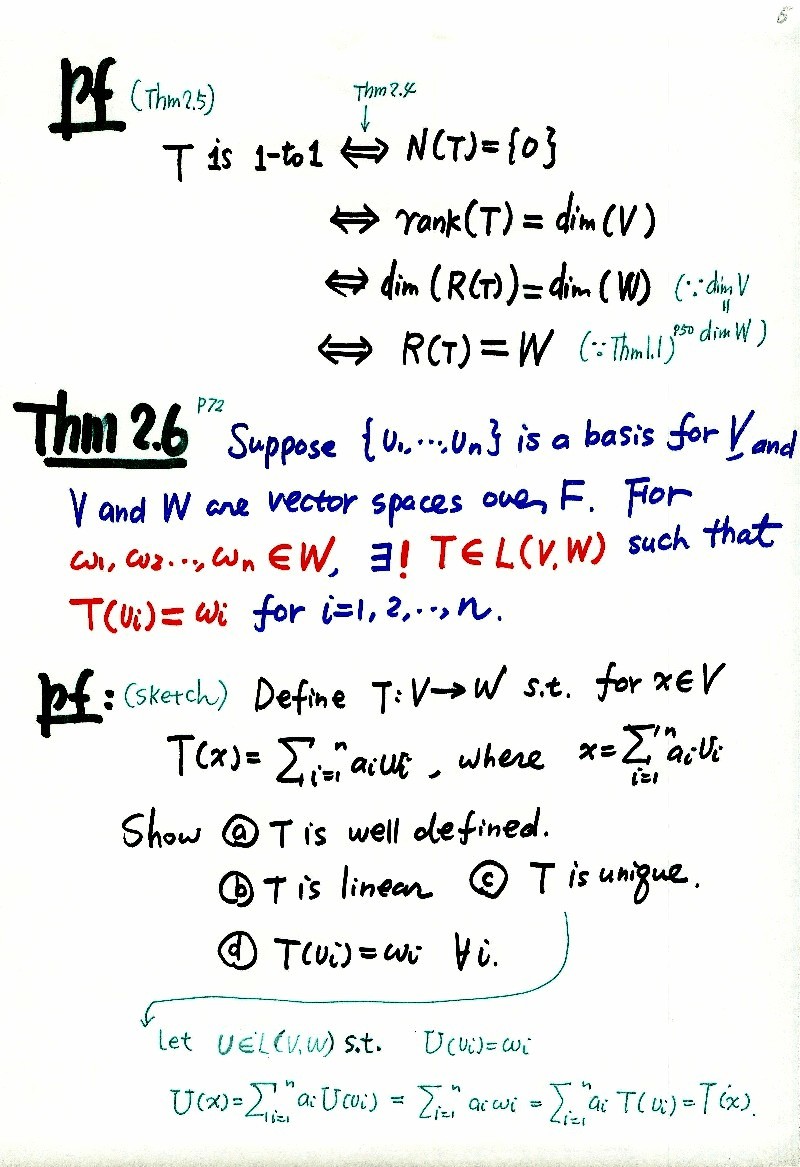 5
pf (Thm 2.5)
Thm 2.4
↓
T is 1-to 1 ⟺ N(T)={0}
⟺ rank(T) = dim(V)
⟺ dim (R(T))=dim(W) (∵ dim V
=
⟺ R(T) = W (∵ Thm 1.1) P50 dim W)
Thm 2.6 P72 Suppose {v1, ..., vn} is a basis for V and
V and W are vector spaces over F. For
ω1, ω2 ..., ωn ∈ W, ∃! T ∈ L(V, W) such that
T(vi) = ωi for i=1, 2, .., n.
pf: (sketch) Define T: V→W s.t. for x∈V
T(x)= ∑_{i=1}^n ai ωi, where x=∑_{i=1}^n ai vi
Show ⓐ T is well defined.
ⓑ T is linear ⓒ T is unique.
ⓓ T(vi) = ωi ∀i.
Let U∈L(V, W) s.t. U(vi)=ωi
U(x)=∑_{i=1}^n ai U(vi) = ∑_{i=1}^n ai ωi = ∑_{i=1}^n ai T(vi) = T(x).